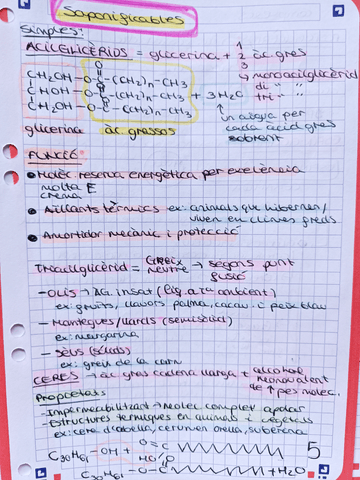 Saponificables
Simples:
ACILGLICÈRIDS = glicerina + 1 àc. gras
2
3
→ monoacilglicèrid
di " "
tri " "
CH2OH -O-C-(CH2)n-CH3
CHOH -O-C-(CH2)n-CH3 + 3H2O
CH2OH -O-C-(CH2)n-CH3
glicerina àc grassos
un aigua per
cada àcid gras
FUNCIÓ:
• Molèc. reserva energètica per excelència
molta E
• Aïllants tèrmics ex: animals que hibernen/
viuen en climes freds
• Amortidor mecànic i protecció
Triacilglicèrid = Greix neutre → segons punt
fusió
- Olis → AG. insat (líq. a Tª ambient)
ex: fruits, llavors palma, cacau i peix blau
- Mantegues/llards (semisòlid)
ex: margarina
- Sèus (sòlids)
ex: greix de la carn
CERES → àc gras cadena llarga + alcohol
monovalent
de ↑ pes molec.
Propietats
- Impermeabilitzant → molèc completa apolar
- Estructures tèrmiques en animals i vegetals
ex: cera d'abella, cerumen orella, suberina
C30H61-OH + O=C
HO
5
C30H61-O-C + H2O